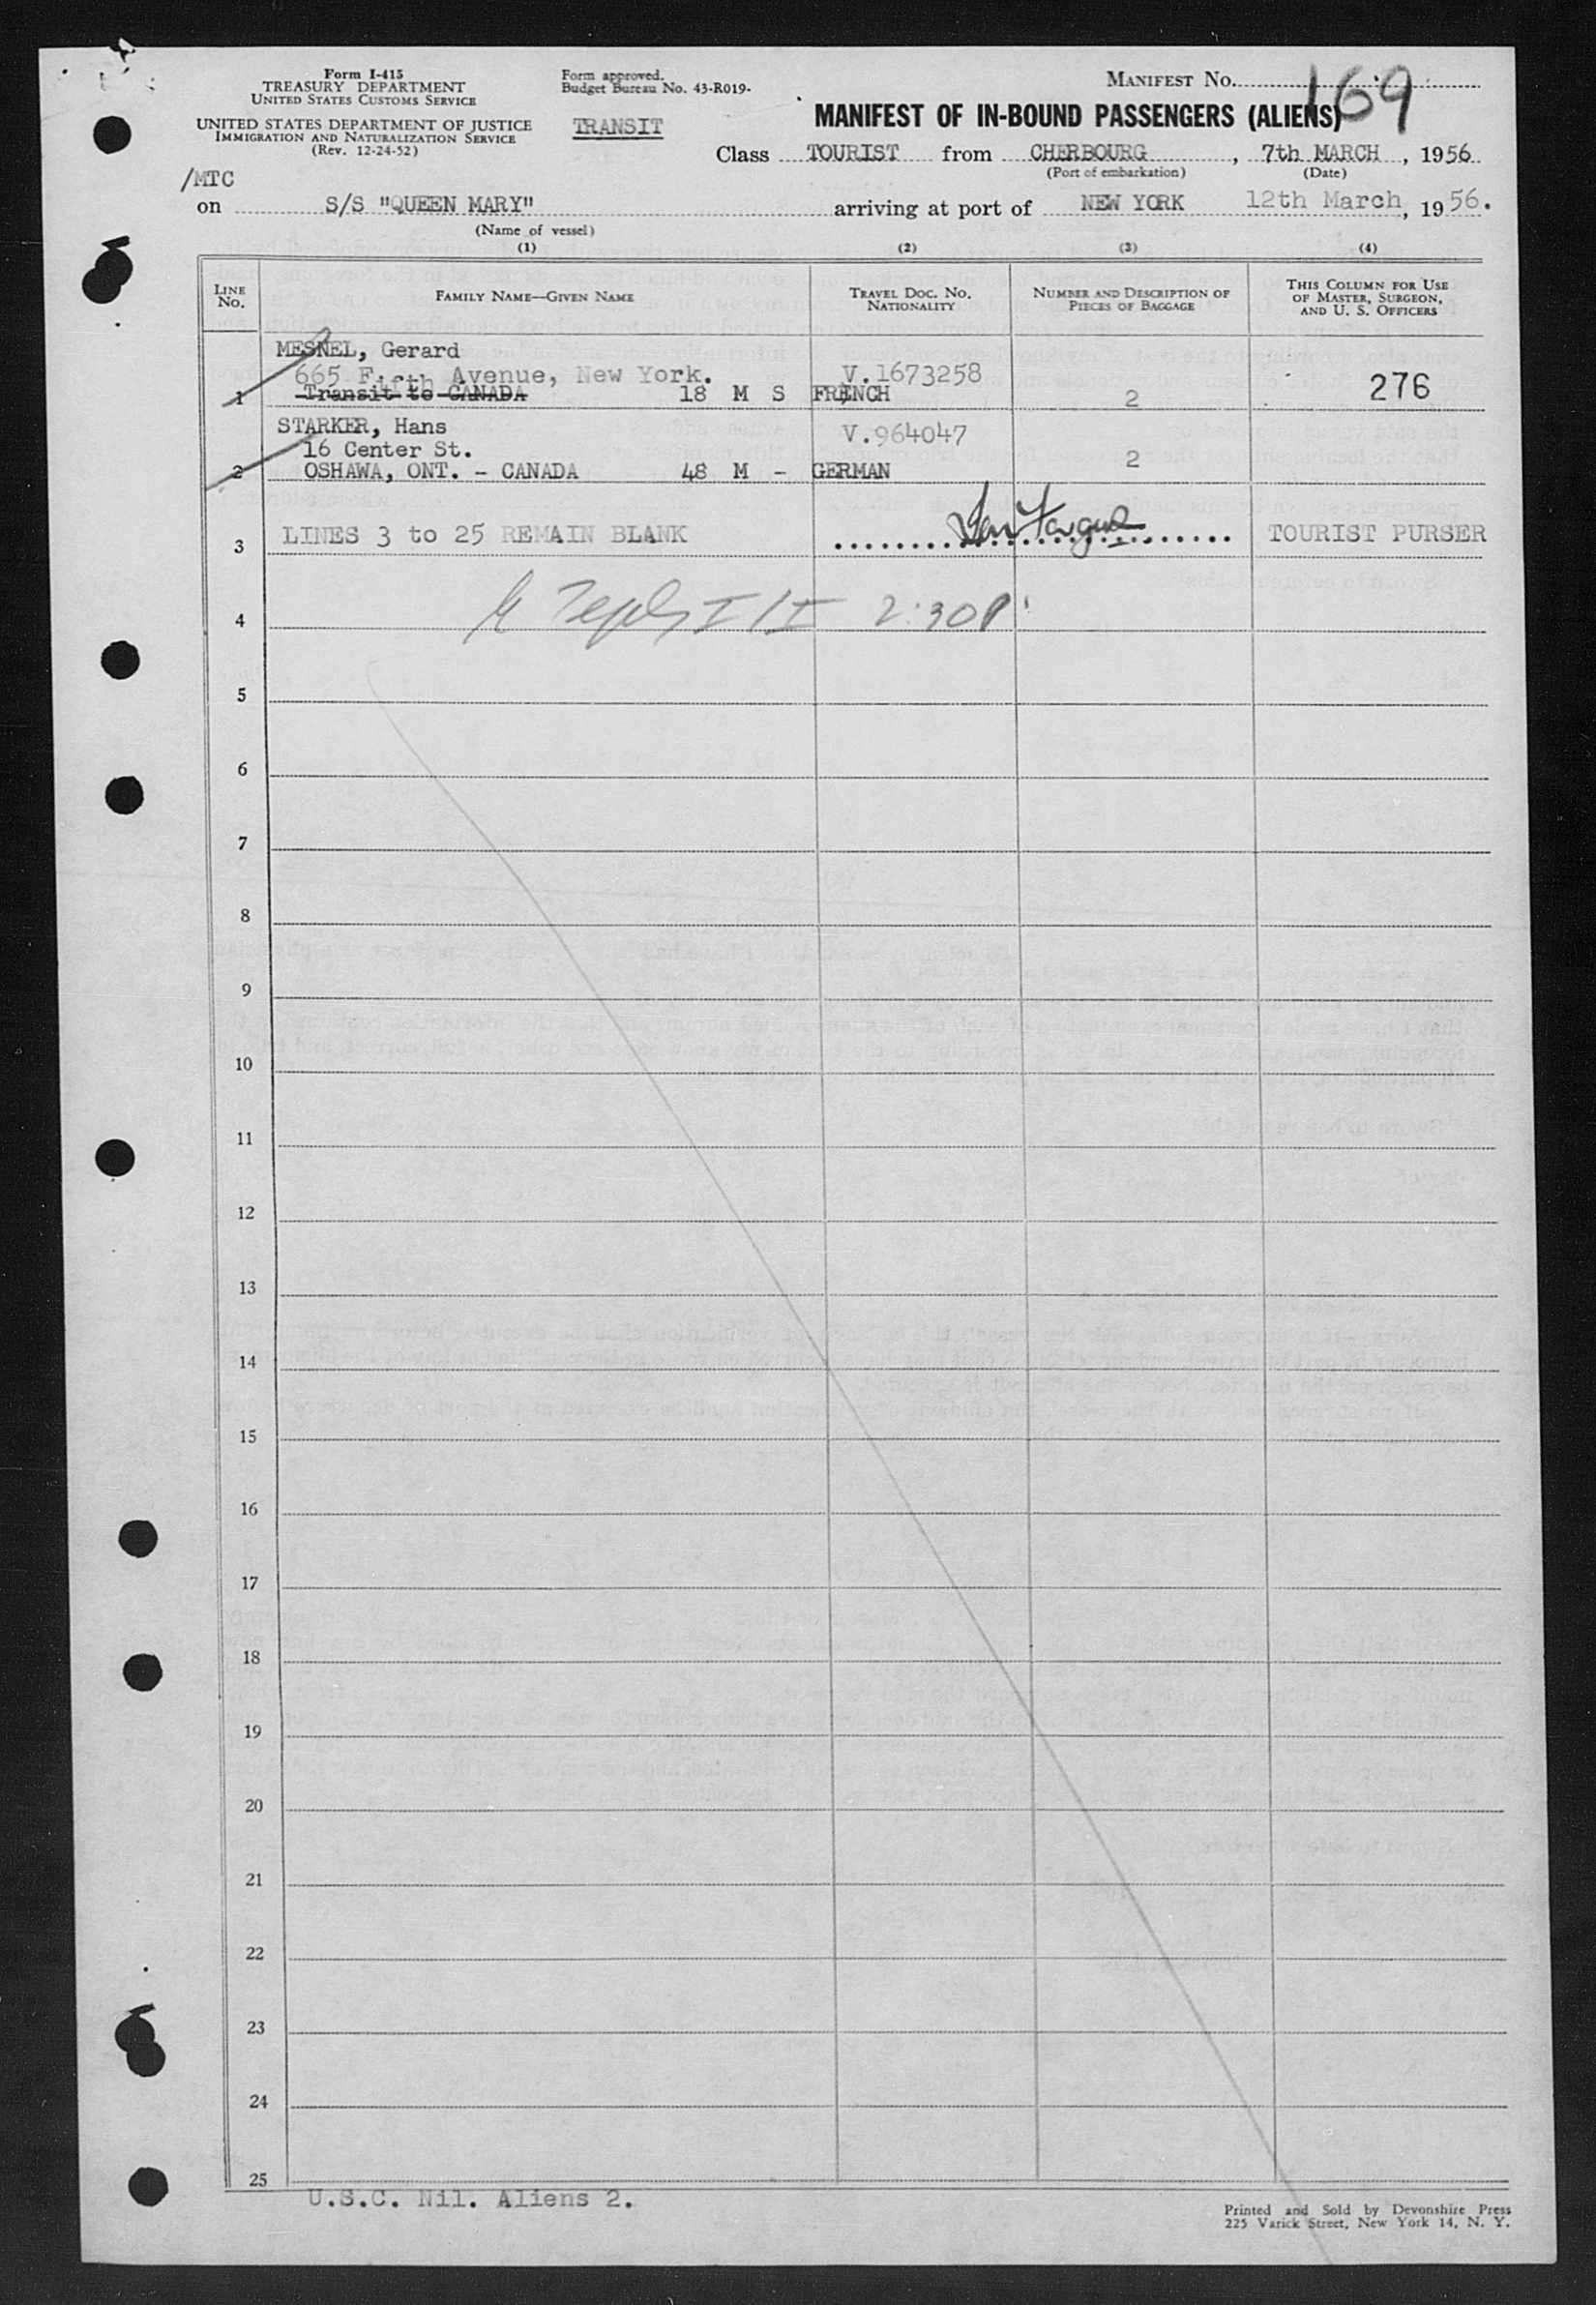 Form I-415
TREASURY DEPARTMENT
UNITED STATES CUSTOMS SERVICE
UNITED STATES DEPARTMENT OF JUSTICE
IMMIGRATION AND NATURALIZATION SERVICE
(Rev. 12-24-52)
Form approved.
Budget Bureau No. 43-R019-
TRANSIT
MANIFEST No. 169
MANIFEST OF IN-BOUND PASSENGERS (ALIENS)
Class TOURIST from CHERBOURG, 7th MARCH, 1956
(Port of embarkation) (Date)
/MTC
on S/S "QUEEN MARY" arriving at port of NEW YORK 12th March, 1956.
(Name of vessel)
(1) (2) (3) (4)
LINE No. FAMILY NAME—GIVEN NAME TRAVEL DOC. NO. NATIONALITY NUMBER AND DESCRIPTION OF PIECES OF BAGGAGE THIS COLUMN FOR USE OF MASTER, SURGEON, AND U. S. OFFICERS
MESNEL, Gerard
665 Fifth Avenue, New York. V.1673258
1 Transit to CANADA 18 M S FRENCH 2 276
STARKER, Hans V.964047
16 Center St.
2 OSHAWA, ONT. - CANADA 48 M - GERMAN 2
3 LINES 3 to 25 REMAIN BLANK TOURIST PURSER
4 2:30P
5
6
7
8
9
10
11
12
13
14
15
16
17
18
19
20
21
22
23
24
25
U.S.C. Nil. Aliens 2.
Printed and Sold by Devonshire Press
225 Varick Street, New York 14, N. Y.